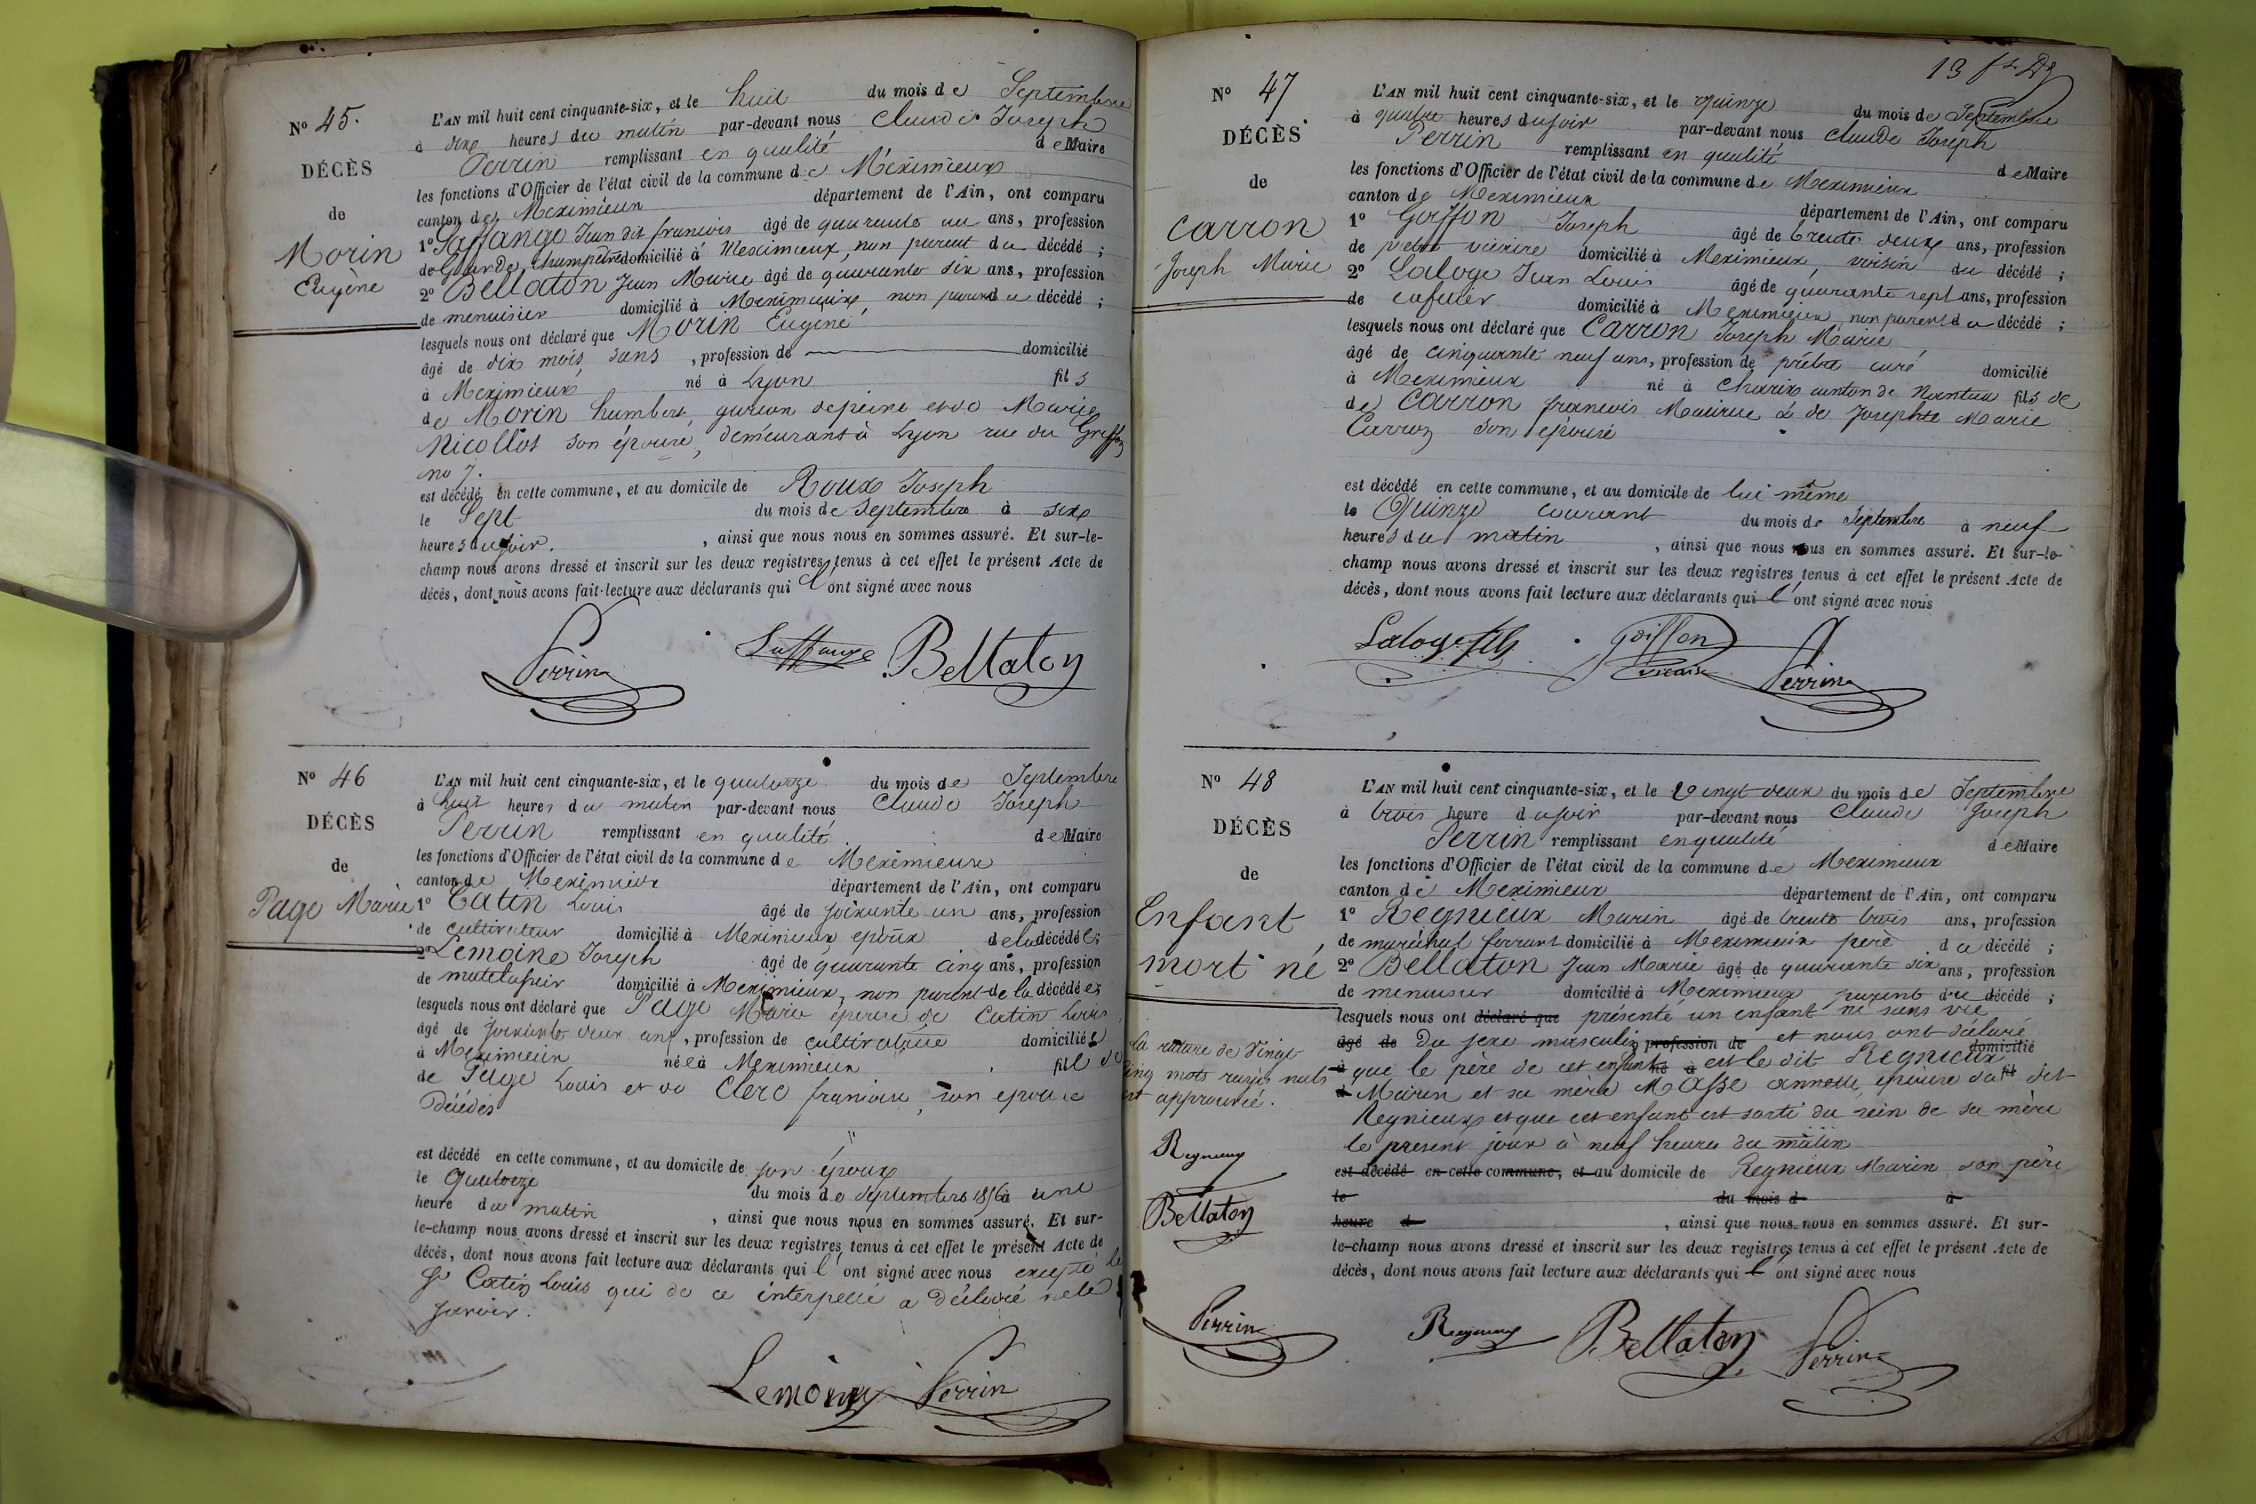 N° 45.
DÉCÈS
de
Morin
Eugène
L'AN mil huit cent cinquante-six, et le huit du mois de Septembre
à dix heures du matin par-devant nous Claude Joseph
Perrin remplissant en qualité de Maire
les fonctions d'Officier de l'état civil de la commune de Méximieux
canton de Meximieux département de l'Ain, ont comparu
1° Laffange Jean dit francois âgé de quarante un ans, profession
de Garde champêtre domicilié à Meximieux, non parent du décédé ;
2° Bellaton Jean Marie âgé de quarante six ans, profession
de menuisier domicilié à Meximieux non parent du décédé ;
lesquels nous ont déclaré que Morin Eugène
âgé de dix mois, sans , profession de domicilié
à Meximieux né à Lyon fils
de Morin humbert garcon de peine et de Marie
Nicollot son épouse, demeurant à Lyon rue du Griffon
no 7.
est décédé en cette commune, et au domicile de Roux Joseph
le Sept du mois de Septembre à six
heures du soir. , ainsi que nous nous en sommes assuré. Et sur-le-
champ nous avons dressé et inscrit sur les deux registres tenus à cet effet le présent Acte de
décès, dont nous avons fait lecture aux déclarants qui l'ont signé avec nous
Perrin Laffange Bellaton
N° 46
DÉCÈS
de
Page Marie
L'AN mil huit cent cinquante-six, et le quatorze du mois de Septembre
à huit heures du matin par-devant nous Claude Joseph
Perrin remplissant en qualité de Maire
les fonctions d'Officier de l'état civil de la commune de Meximieux
canton de Meximieux département de l'Ain, ont comparu
1° Catin Louis âgé de soixante un ans, profession
de cultivateur domicilié à Meximieux époux de la décédée ;
2° Lemoine Joseph âgé de quarante cinq ans, profession
de matelassier domicilié à Meximieux, non parent de la décédée ;
lesquels nous ont déclaré que Page Marie épouse de Catin Louis
âgé de soixante deux ans, profession de cultivatrice domiciliée
à Meximieux née à Meximieux fille de
de Page Louis et de Clerc francoise, son epouse
Décédés
est décédé en cette commune, et au domicile de son époux
le Quatorze du mois de Septembre 1856 à une
heure du matin , ainsi que nous nous en sommes assuré. Et sur-
le-champ nous avons dressé et inscrit sur les deux registres tenus à cet effet le présent Acte de
décès, dont nous avons fait lecture aux déclarants qui l'ont signé avec nous excepté le
Sr Catin Louis qui de ce interpellé a déclaré ne le
savoir.
Lemoine Perrin
13
N° 47
DÉCÈS
de
Carron
Joseph Marie
L'AN mil huit cent cinquante-six, et le quinze du mois de Septembre
à quatre heures du soir par-devant nous Claude Joseph
Perrin remplissant en qualité de Maire
les fonctions d'Officier de l'état civil de la commune de Meximieux
canton de Meximieux département de l'Ain, ont comparu
1° Goiffon Joseph âgé de trente deux ans, profession
de pretre vicaire domicilié à Meximieux, voisin du décédé ;
2° Laloge Jean Louis âgé de quarante sept ans, profession
de cafetier domicilié à Meximieux, non parent du décédé ;
lesquels nous ont déclaré que Carron Joseph Marie
âgé de cinquante neuf ans, profession de prêtre curé domicilié
à Meximieux né à Charix canton de Nantua fils de
de Carron francois Maurice & de Josephte Marie
Carron son épouse
est décédé en cette commune, et au domicile de lui même
le Quinze courant du mois de Septembre à neuf
heures du matin , ainsi que nous nous en sommes assuré. Et sur-le-
champ nous avons dressé et inscrit sur les deux registres tenus à cet effet le présent Acte de
décès, dont nous avons fait lecture aux déclarants qui l'ont signé avec nous
Laloge fils Goiffon
vicaire Perrin
N° 48
DÉCÈS
de
Enfant
mort né
L'AN mil huit cent cinquante-six, et le vingt deux du mois de Septembre
à trois heure du soir par-devant nous Claude Joseph
Perrin remplissant en qualité de Maire
les fonctions d'Officier de l'état civil de la commune de Meximieux
canton de Meximieux département de l'Ain, ont comparu
1° Regnieux Marin âgé de trente trois ans, profession
de maréchal ferrant domicilié à Meximieux père du décédé ;
2° Bellaton Jean Marie âgé de quarante six ans, profession
de menuisier domicilié à Meximieux parent du décédé ;
lesquels nous ont déclaré que présenté un enfant né sans vie
âgé de Du sexe masculin profession de et nous ont déclaré domicilié
à que le père de cet enfant né à est le dit Regnieux fil
d Marin et sa mère Masse annette, épouse du dit
Regnieux et que cet enfant est sorti du sein de sa mère
le present jour à neuf heures du matin
est décédé en cette commune, et au domicile de Regnieux Marin son père
le du mois d à
heure d , ainsi que nous nous en sommes assuré. Et sur-
le-champ nous avons dressé et inscrit sur les deux registres tenus à cet effet le présent Acte de
décès, dont nous avons fait lecture aux déclarants qui l'ont signé avec nous
la rature de Vingt
cinq mots rayés nuls
est approuvée.
Regnieux
Bellaton
Perrin
Regnieux Bellaton Perrin